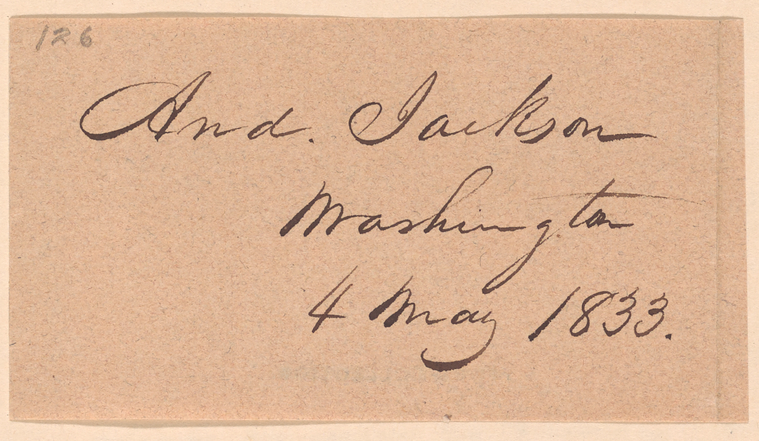 126
And. Jackson
Washington
4 May 1833.